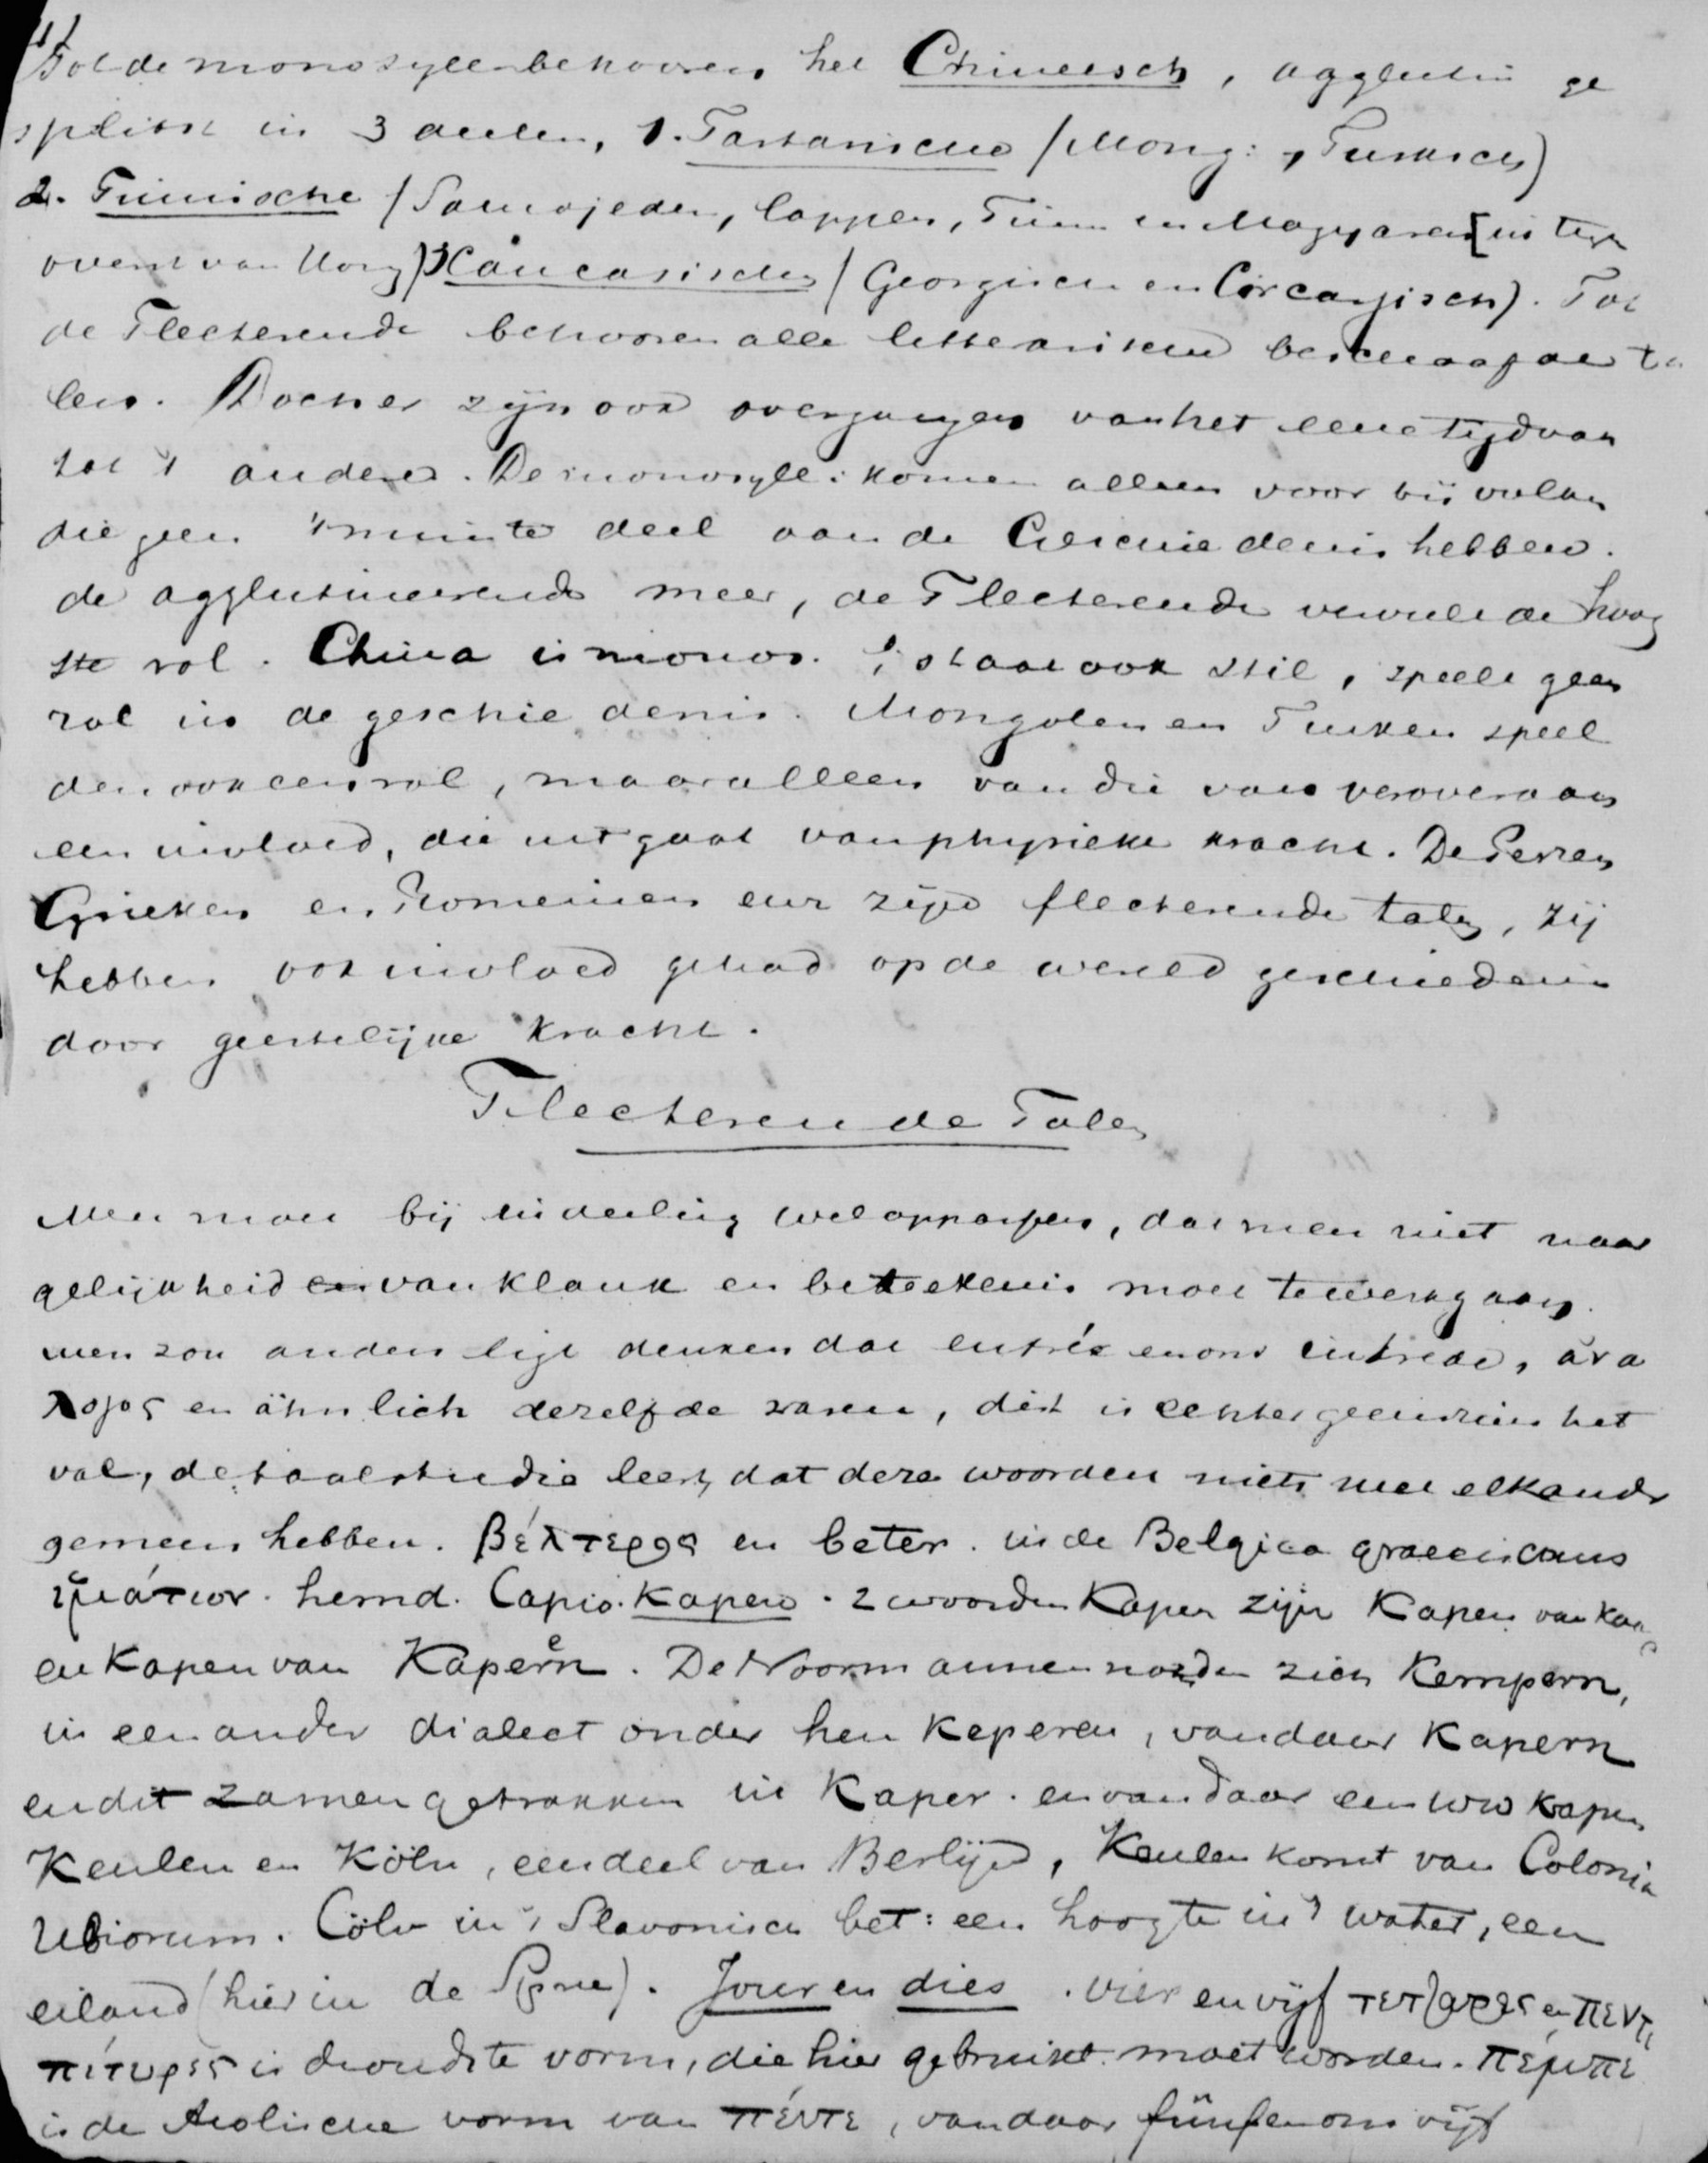 Tot de monosyll. behooren het Chineesch, agglutin ge
splitst in 3 deelen, 1. Tartarische (Mong: , Turksch)
2. Finnische (Samojeden, Lappen, Finn en Magyaren [in tegen
overst van Hong) 3 Caucasische (Georgisch en Circassisch). Tot
de Flecterende behooren alle letterarisch beschaafde ta
len. Doch er zijn ook overgangen van het eene tijdvak
tot 't andere. De monosyll: komen alleen voor bij volken
die geen 't minste deel aan de Geschiedenis hebben.
de agglutineerende meer, de Flecterende vervult de hoog
ste rol. China is monos. 't staat ook stil, speelt geen
rol in de geschiedenis. Mongolen en Turken speel
den ook een rol, maar alleen van die van veroveraars
een invloed, die uitgaat van physieke kracht. De Perzen
Grieken en Romeinen enz zijn flecterende talen, zij
hebben ook invloed gehad op de wereld geschiedenis
door geestelijke kracht.
Flecterende Talen
Men moet bij indeeling wel oppassen, dat men niet naar
gelijkheid en van klank en beteekenis moet te werk gaan.
men zou anders ligt denken dat entrée en ons intrede, ἀνα
λογος en ähnlich dezelfde waren, dit is echter geenszins het
val, de taalstudie leert, dat deze woorden niets met elkander
gemeen hebben. βέλτερος en beter. in de Belgica graecicans
ἱμάτιον. hemd. Capio. kapen. 2 woorden Kapen zijn Kapen van kaap
en Kapen van Kapern. De Noormannen noemden zich Kempern,
in een ander dialect onder hen Keperen, vandaar Kapern
en dit zamengetrokken in Kaper. en vandaar een ww kapen
Keulen en Köln, een deel van Berlijn, Keulen komt van Colonia
Ubiorum. Cöln in 't Slavonisch bet: een hoogte in 't water, een
eiland (hier in de Spree). Jour en dies. vier en vijf τετταρες en πεντε
πίτυρες is de oudste vorm, die hier gebruikt moet worden. πέμπε
is de Aeolische vorm van πέντε, vandaar fünf en ons vijf